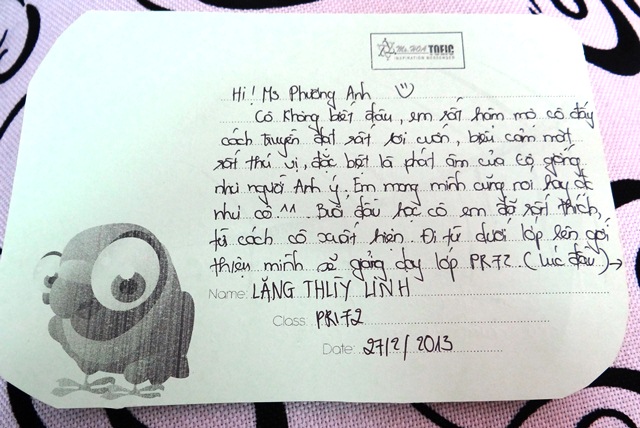 Ms. HOA TOEIC
INSPIRATION MESSENGER
Hi! Ms Phương Anh
Cô không biết đâu, em rất hâm mộ cô đấy
cách truyền đạt rất lôi cuốn, biểu cảm mặt
rất thú vị, đặc biệt là phát âm của cô, giống
như người Anh ý. Em mong mình cũng nói hay đc
như cô ^^. Buổi đầu học cô em đã rất thích,
từ cách cô xuất hiện. Đi từ dưới lớp lên giới
thiệu mình sẽ giảng dạy lớp PR72 (lúc đầu) →
Name: LĂNG THÙY LINH
Class: PRI72
Date: 27/2/2013